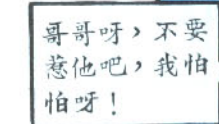 哥哥呀，不要
惹他吧，我怕
怕呀！